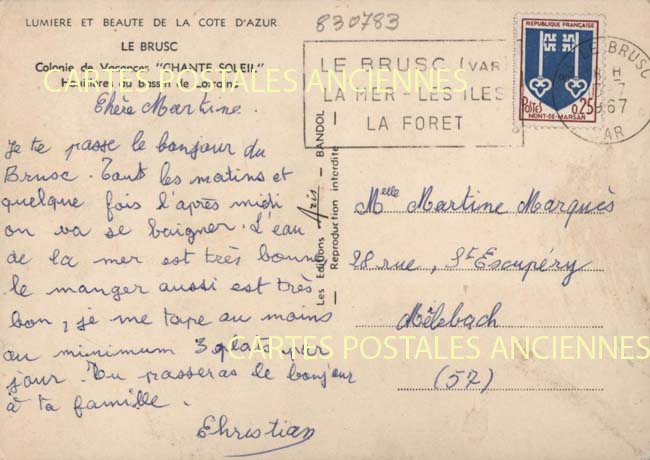 LUMIERE ET BEAUTE DE LA COTE D'AZUR
LE BRUSC
Colonie de Vacances "CHANTE SOLEIL"
Houillères du Bassin de Lorraine
CARTES POSTALES ANCIENNES
830783
LE BRUSC (VAR)
LA MER - LES ILES
LA FORET
LE BRUSC
H
-7
1967
VAR
REPUBLIQUE FRANÇAISE
POSTES 0,25
MONT-DE-MARSAN
Chère Martine.
Je te passe le bonjour du
Brusc. Tout les matins et
quelque fois l'après midi
on va se baigner. L'eau
de la mer est très bonne
le manger aussi est très
bon, je me tape au moins
au minimum 3 plats par
jour. Tu passeras le bonjour
à ta famille.
Christian
Les Editions Aris - BANDOL
Reproduction interdite
Melle Martine Marquès
28 rue, St Escupéry
Mèlebach
(57)
CARTES POSTALES ANCIENNES